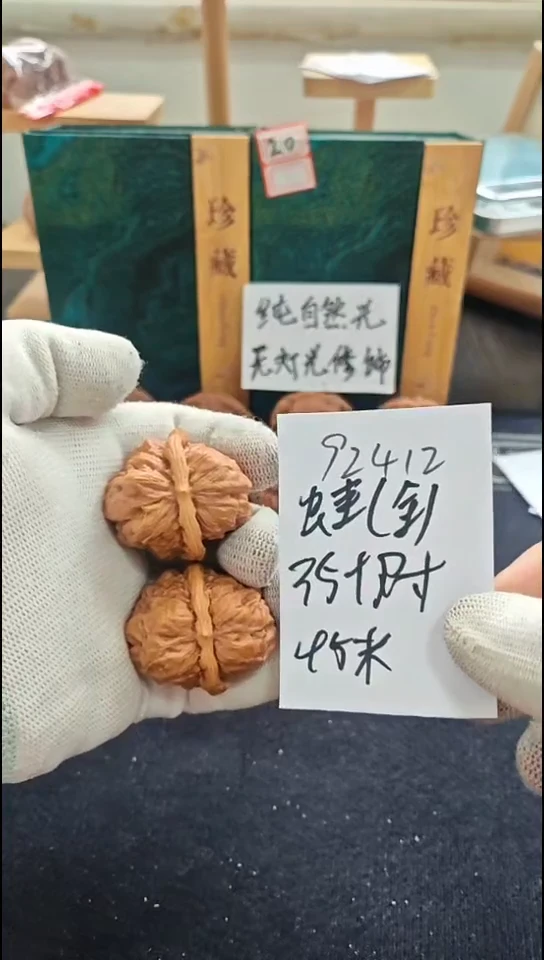 20
珍藏
珍藏
纯自然光
无灯光修饰
92412
35十肘
45米